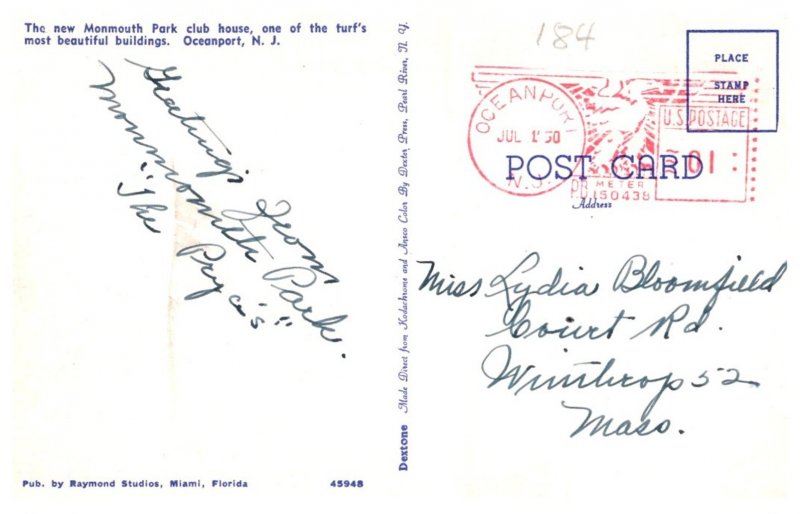 The new Monmouth Park club house, one of the turf's
most beautiful buildings. Oceanport, N. J.
Greetings from
Monmouth Park.
"The Pryce's"
Pub. by Raymond Studios, Miami, Florida
45948
Dextone
Made Direct from Kodachrome and Ansco Color By Dexter Press, Pearl River, N. Y.
184
PLACE
STAMP
HERE
OCEANPORT
JUL 1 '50
N.J.
U.S. POSTAGE
01
METER
150438
POST CARD
Address
Miss Lydia Bloomfield
Court Rd.
Winthrop 52
Mass.